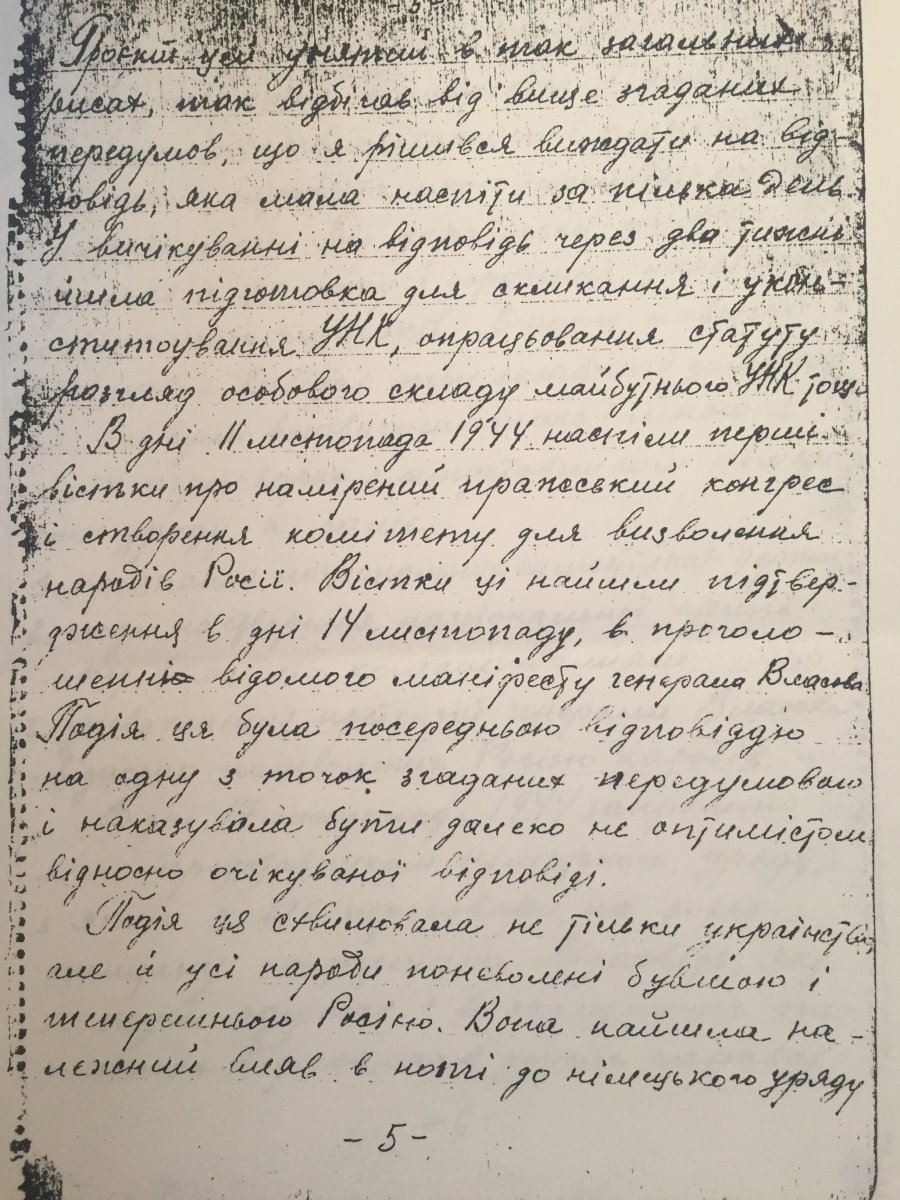 - 5 -
Проєкт усй унятий в так загальних
рисах, так відбігав від вище згаданих
передумов, що я рішився виждати на від-
повідь, яка мала наспіти за кілька день.
У вичікуванні на відповідь через два тижні
йшла підготовка для скликання і укон-
ституування УНК, опрацьовання статуту
розгляд особового складу майбутнього УНК тощо
В дні 11 листопада 1944 наспіли перші
вістки про намірений пражський конгрес
і створення комітету для визволення
народів Росії. Вістки ці найшли підтвер-
дження в дні 14 листопаду, в проголо-
шенні відомого маніфесту генерала Власова
Подія ця була посередньою відповіддю
на одну з точок згаданих передумовою
і наказувала бути далеко не оптимістом
відносно очікуваної відповіді.
Подія ця схвилювала не тільки українство,
але й усі народи поневолені бувшою і
теперешньою Росією. Вона найшла на-
лежний вияв в ноті до німецького уряду
- 5 -